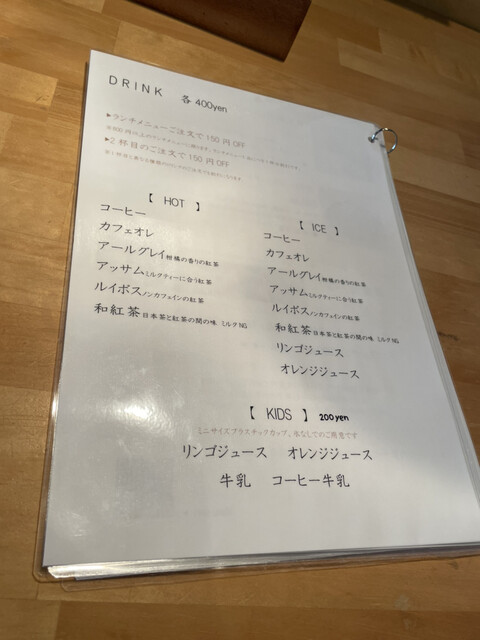 DRINK 各 400yen
▶ランチメニューご注文で 150 円 OFF
▶2 杯目のご注文で 150 円 OFF
【 HOT 】
コーヒー
カフェオレ
アールグレイ 柑橘の香りの紅茶
アッサム ミルクティーに合う紅茶
ルイボス ノンカフェインの紅茶
和紅茶 日本茶と紅茶の間の味 ミルクNG
【 ICE 】
コーヒー
カフェオレ
アールグレイ 柑橘の香りの紅茶
アッサム ミルクティーに合う紅茶
ルイボス ノンカフェインの紅茶
和紅茶 日本茶と紅茶の間の味 ミルクNG
リンゴジュース
オレンジジュース
【 KIDS 】 200yen
ミニサイズプラスチックカップ、氷なしでのご用意です
リンゴジュース オレンジジュース
牛乳 コーヒー牛乳